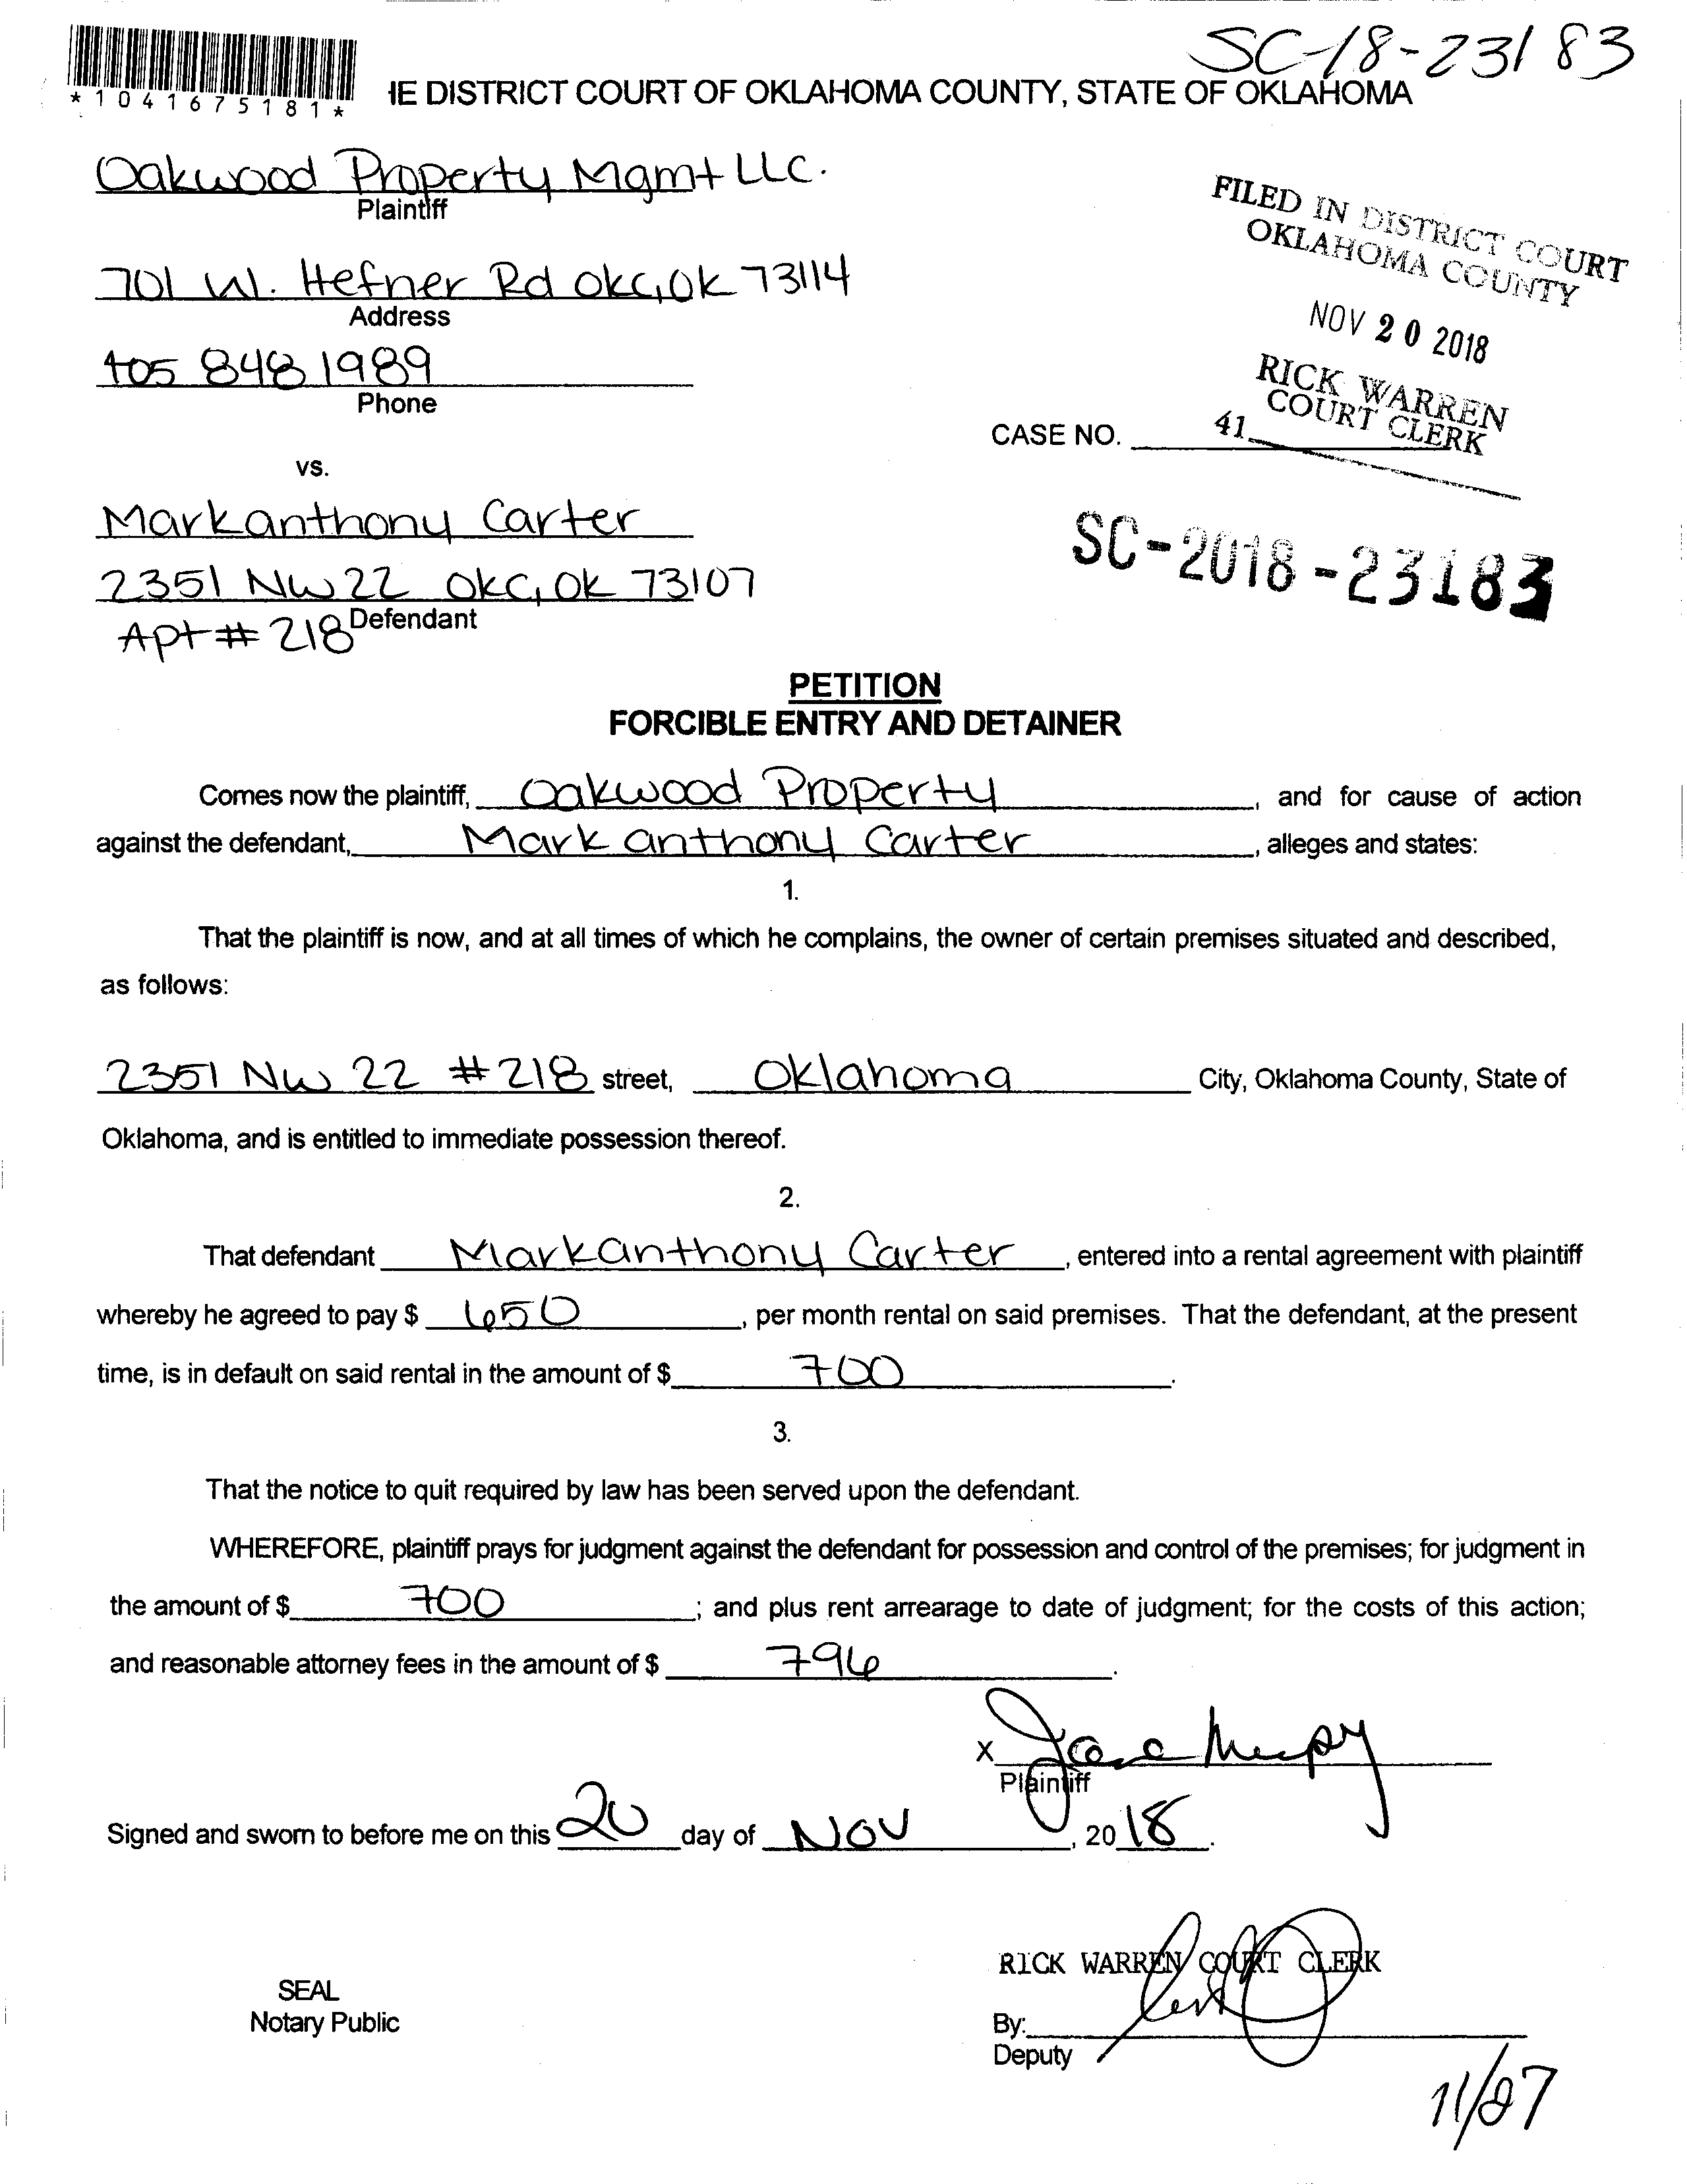 SC-18-23183
*1041675181*
IE DISTRICT COURT OF OKLAHOMA COUNTY, STATE OF OKLAHOMA
Oakwood Property Mgmt LLC.
Plaintiff
701 W. Hefner Rd OKC, OK 73114
Address
405 848 1989
Phone
FILED IN DISTRICT COURT
OKLAHOMA COUNTY
NOV 20 2018
RICK WARREN
COURT CLERK
41
CASE NO.
vs.
Markanthony Carter
2351 NW 22 OKC, OK 73107
Apt # 218 Defendant
SC-2018-23183
PETITION
FORCIBLE ENTRY AND DETAINER
Comes now the plaintiff, Oakwood Property, and for cause of action
against the defendant, Mark anthony Carter, alleges and states:
1.
That the plaintiff is now, and at all times of which he complains, the owner of certain premises situated and described,
as follows:
2351 NW 22 #218 street, Oklahoma City, Oklahoma County, State of
Oklahoma, and is entitled to immediate possession thereof.
2.
That defendant Markanthony Carter, entered into a rental agreement with plaintiff
whereby he agreed to pay $ 650, per month rental on said premises. That the defendant, at the present
time, is in default on said rental in the amount of $ 700.
3.
That the notice to quit required by law has been served upon the defendant.
WHEREFORE, plaintiff prays for judgment against the defendant for possession and control of the premises; for judgment in
the amount of $ 700; and plus rent arrearage to date of judgment; for the costs of this action;
and reasonable attorney fees in the amount of $ 796.
X
Plaintiff
Signed and sworn to before me on this 20 day of NOV, 2018.
RICK WARREN COURT CLERK
SEAL
Notary Public
By:
Deputy
11/27